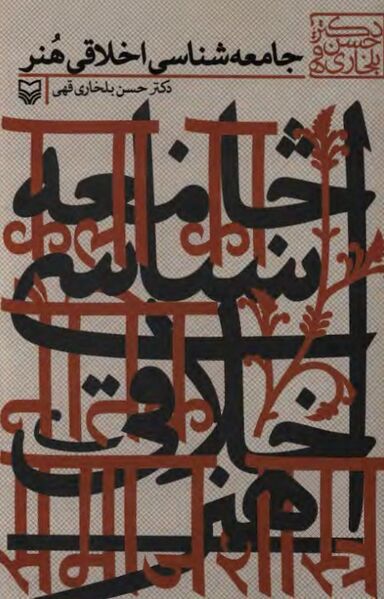 جامعه‌شناسی اخلاقی هُنر
دکتر حسن بلخاری قهی
دکتر
حسن
بلخاری
قهی
جامعه
شناسی
اخلاقی
هنر
समाजशास्त्र